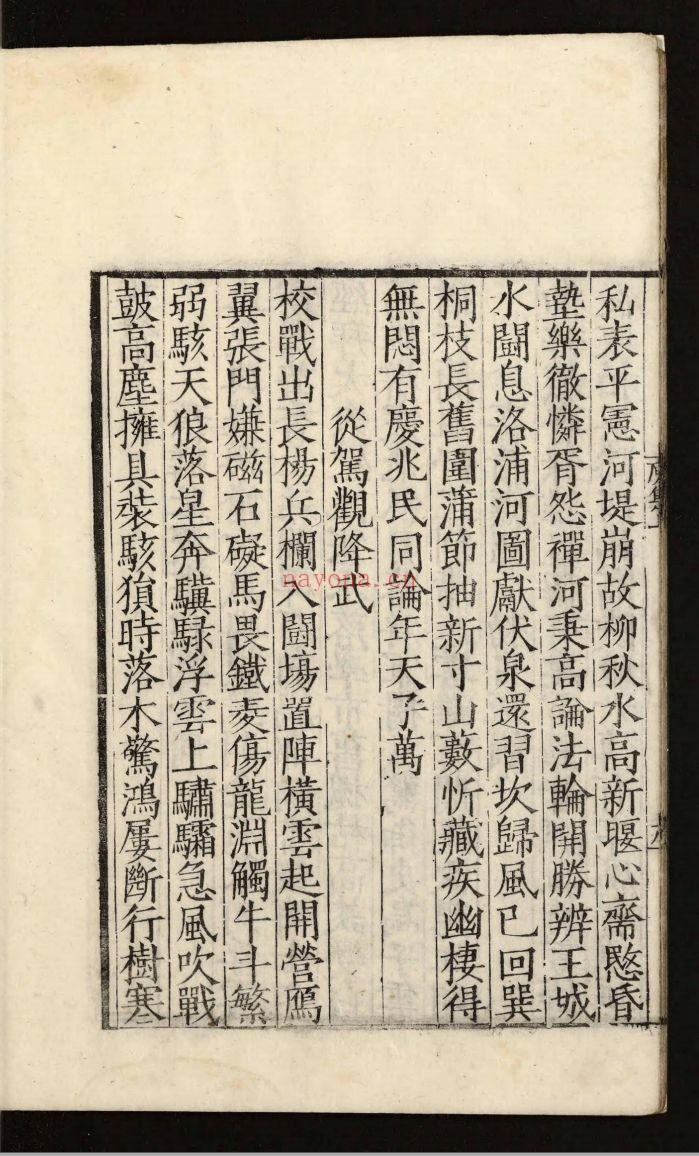 私表平憲河堤崩故柳秋水高新堰心齋愍昏
墊樂徹憐胥怨禪河秉高論法輪開勝辨王城
水鬪息洛浦河圖獻伏泉還習坎歸風已回巽
桐枝長舊圍蒲節抽新寸山藪忻藏疾幽棲得
無悶有慶兆民同論年天子萬
從駕觀降武
校戰出長楊兵欄入鬪場置陣橫雲起開營鴈
翼張門嫌磁石礙馬畏鐵菱傷龍淵觸牛斗繁
弱駭天狼落星奔驥騄浮雲上驌驦急風吹戰
鼓高塵擁具裝駭猿時落木驚鴻屢斷行樹寒
nayona.cn